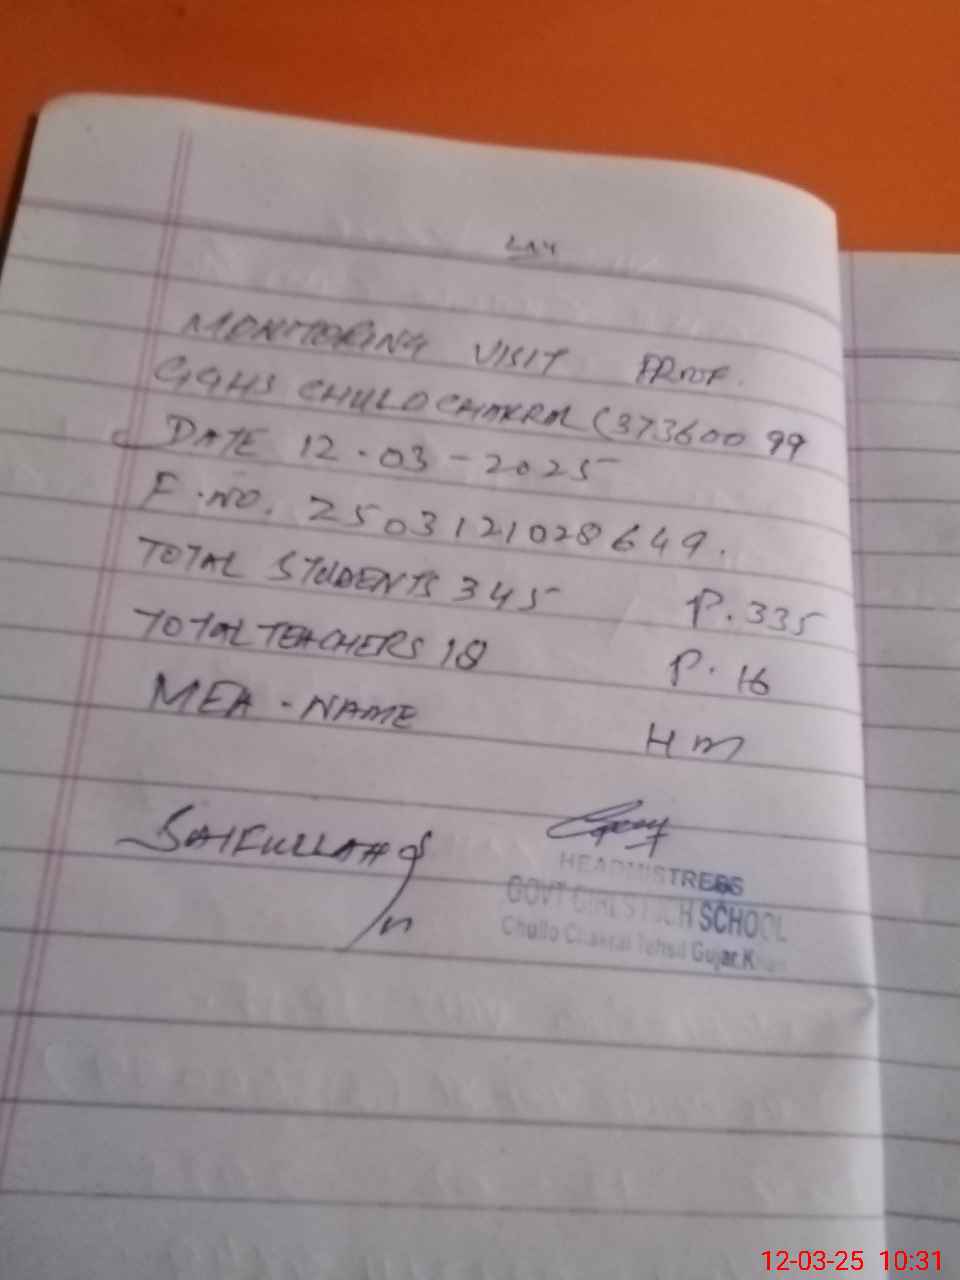 MONITORING VISIT PROOF.
GGHS CHULO CHAKRAL (37360099
DATE 12-03-2025
F.NO. 2503121028649.
TOTAL STUDENTS 345 P.335
TOTAL TEACHERS 18 P.16
MEA-NAME HM
SAIFULLAH
HEADMISTRESS
GOVT GIRLS HIGH SCHOOL
Chullo Chakral Tehsil Gujar Khan
12-03-25 10:31